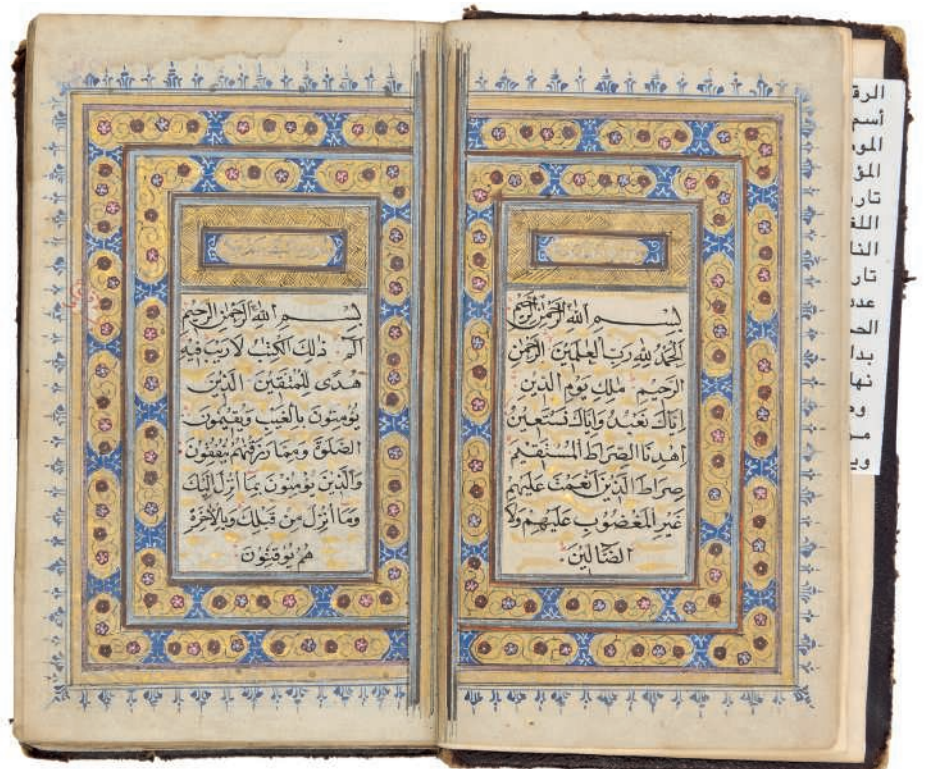 بِسْمِ اللهِ الرَّحْمٰنِ الرَّحِيمِ
اَلْحَمْدُ لِلهِ رَبِّ الْعٰلَمِينَ الرَّحْمٰنِ
الرَّحِيمِ مٰلِكِ يَوْمِ الدِّينِ
اِيَّاكَ نَعْبُدُ وَاِيَّاكَ نَسْتَعِينُ
اِهْدِنَا الصِّرَاطَ الْمُسْتَقِيمَ
صِرَاطَ الَّذِينَ اَنْعَمْتَ عَلَيْهِمْ
غَيْرِ الْمَغْضُوبِ عَلَيْهِمْ وَلَا
الضَّالِّينَ
بِسْمِ اللهِ الرَّحْمٰنِ الرَّحِيمِ
الم ذٰلِكَ الْكِتٰبُ لَا رَيْبَ فِيهِ
هُدًى لِلْمُتَّقِينَ الَّذِينَ
يُؤْمِنُونَ بِالْغَيْبِ وَيُقِيمُونَ
الصَّلٰوةَ وَمِمَّا رَزَقْنٰهُمْ يُنْفِقُونَ
وَالَّذِينَ يُؤْمِنُونَ بِمَا اُنْزِلَ اِلَيْكَ
وَمَا اُنْزِلَ مِنْ قَبْلِكَ وَبِالْاٰخِرَةِ
هُمْ يُوقِنُونَ